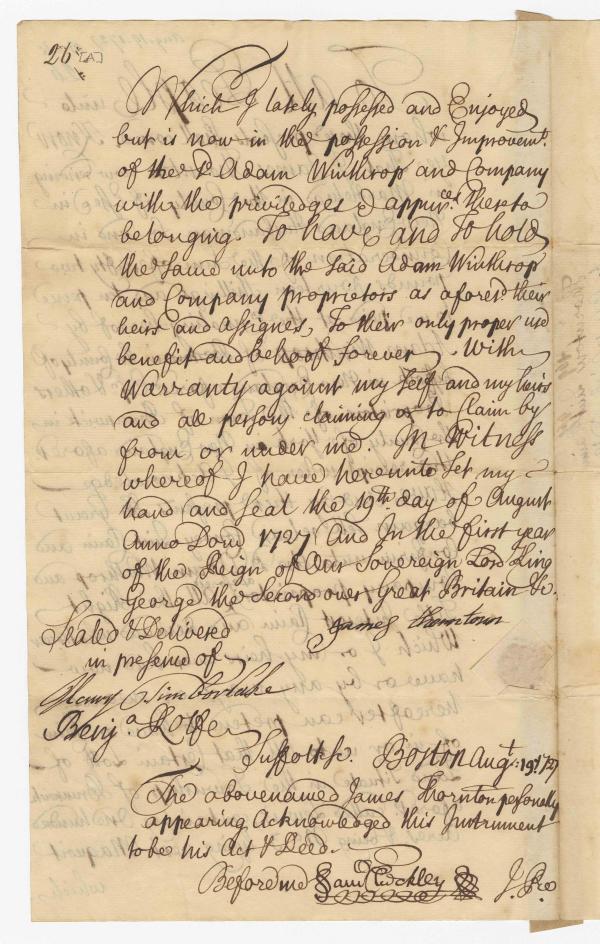 26 [A]
Which I lately possessed and Enjoyed
but is now in the possession & Improvemt.
of the sd Adam Winthrop and Company
with the priviledges & appurces thereto
belonging. To have and To hold
the Same unto the Said Adam Winthrop
and Company proprietors as aforesd. their
heirs and Assignes, To their only proper use
benefit and behoof forever. With
Warranty against my Self and my heirs
and all persons claiming or to Claim by
from or under me. In Witness
whereof I have hereunto Set my
hand and Seal the 19th. day of August
Anno Dom 1727 And In the first year
of the Reign of Our Sovereign Lord King
George the Second over Great Britain &c.
James thorntown
Sealed & Delivered
in presence of
Henry Timberlake
Benja. Rolfe
Suffolk sc. Boston Augt. 19. 1727
The abovenamed James Thornton personally
appearing Acknowledged this Instrument
to be his Act & Deed.
Before me Saml Checkley J. Pce